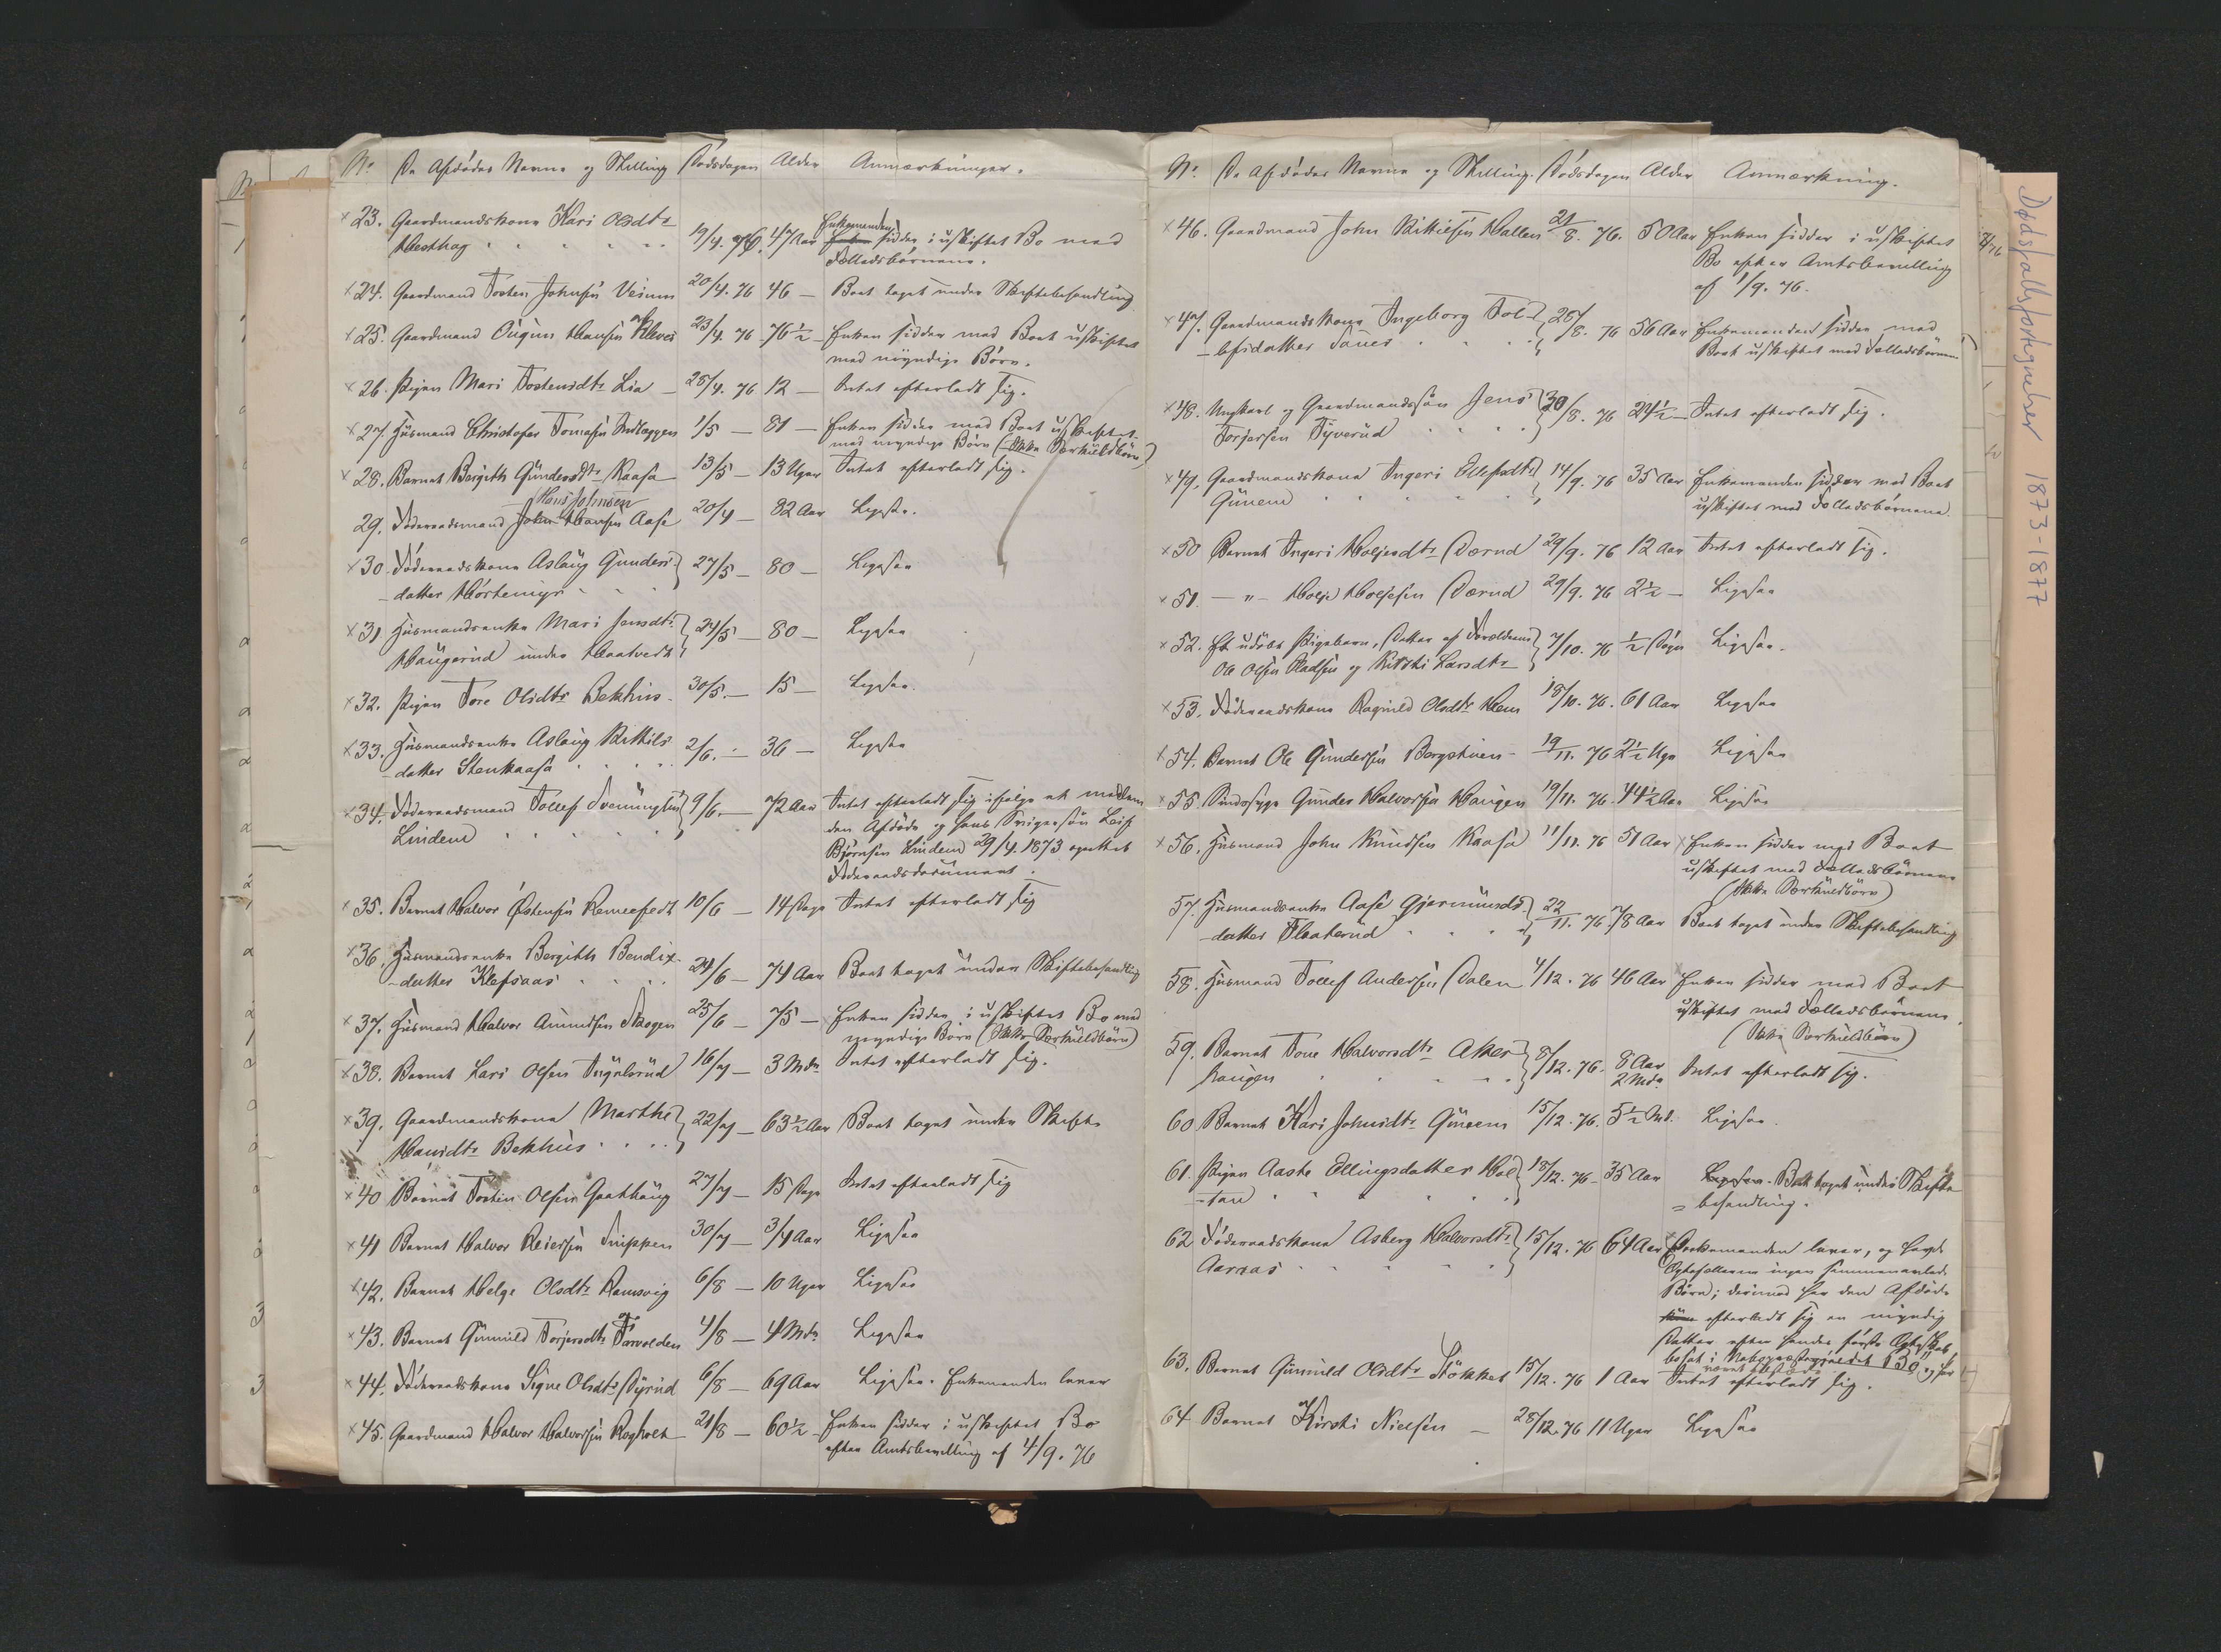 No. De Afdødes Navne og Stilling Dødsdagen Alder Anmærkninger.
× 23. Gaardmandskone Kari Olsdtr
Hesthag 19/4. 76. 47 Aar Enkemanden sidder i uskiftet Bo med
Fælledsbørnene.
× 24. Gaardmand Tosten Johnsen Veium 20/4. 76 46 — Boet taget under Skiftebehandling
× 25. Gaardmand Ougun Hansen Kleves 23/4. 76 76½ — Enken sidder med Boet uskiftet
med myndige Børn.
× 26. Pigen Mari Tostensdtr Lia — 28/4. 76 12 — Intet efterladt sig.
× 27. Husmand Christofer Tomesen 1/5 — 81 — Enken sidder med Boet uskiftet
med myndige Børn (Ikke Særkuldbørn)
× 28. Barnet Bergith Gundersdtr Kaasa 13/5 — 13 Uger Intet efterladt sig.
Hans Johnsen
29. Føderaadsmand John Hansen Aase 20/4 — 82 Aar Ligesaa.
× 30. Føderaadskone Aslaug Gunders- 27/5 — 80 — Ligesaa
-datter Hørtemyr
× 31 Husmandsenke Mari Jensdtr 24/5 — 80 — Ligesaa
Haugerud under Haatvedt
× 32. Pigen Tore Olsdtr Bekhus. 30/5. — 15 — Ligesaa.
× 33. Husmandsenke Aslaug Kittils- 2/6. — 36 — Ligesaa
-datter Stenkaasa
× 34. Føderaadsmand Tollef Sveinungsen 9/6. — 72 Aar Intet efterladt sig ifølge et mellem
Lindem den Afdøde og hans Svigersøn Leif
Bjørnsen Lindem 29/4. 1873 oprettet
Føderaadsdocument.
× 35. Barnet Halvor Østensen Remeefedt 10/6 — 14 Dage Intet efterladt sig
× 36. Husmandsenke Bergith Bendix-
-datter Klefsaas 24/6 — 74 Aar Boet taget under Skiftebehandling
× 37. Husmand Halvor Amundsen Skogen 25/6 — 75 — Enken sidder i uskiftet Bo med
myndige Børn (Ikke Særkuldbørn)
× 38. Barnet Lars Olsen Ingulsrud 16/7 — 3 Mdr Intet efterladt sig.
× 39. Gaardmandskone Marthe 22/7 — 63½ Aar Boet taget under Skifte
Hansdtr Bekhus
× 40 Barnet Tostein Olsen Graathaug 27/7 — 15 Dage Intet efterladt sig
× 41 Barnet Halvor Reiersen Snippen 30/7 — 3/4 Aar Ligesaa
× 42. Barnet Helge Olsdtr Ramsvig 6/8 — 10 Uger Ligesaa
× 43. Barnet Gunnild Torjersdtr Farvolden 4/8 — 4 Mdr Ligesaa
× 44. Føderaadskone Signe Olsdtr Dyrud 6/8 — 69 Aar Ligesaa. Enkemanden lever
× 45. Gaardmand Halvor Halvorsen Rogholt 21/8 — 60½ — Enken sidder i uskiftet Bo
efter Amtsbevilling af 4/9. 76
No. De Afdødes Navne og Stilling. Dødsdagen Alder Anmærkning.
× 46. Gaardmand John Kittilsen Hallem 21/8. 76. 50 Aar Enken sidder i uskiftet
Bo efter Amtsbevilling
af 1/9. 76.
× 47. Gaardmandskone Ingeborg Tol- 26/8. 76 56 Aar Enkemanden sidder med
-lefsdatter Boet uskiftet med Fælledsbørnene
× 48. Ungkarl og Gaardmandssøn Jens 30/8. 76 24½ — Intet efterladt sig.
Torjersen Tyverud
× 49. Gaardmandskone Ingeri 14/9. 76 35 Aar Enkemanden sidder med Boet
Gunem uskiftet med Fælledsbørnene.
× 50 Barnet Ingeri Holjesdtr Dærud 29/9. 76 12 Aar Intet efterladt sig.
× 51. — " — Holje Holjesen Dærud 29/9. 76 2½ — Ligesaa
× 52. Et udøbt Pigebarn, Datter af Forældrene 7/10. 76 ½ Døgn Ligesaa.
Ole Olsen og Kirsti Larsdtr
× 53. Føderaadskone Ragnild Olsdtr Hem 18/10. 76. 61 Aar Ligesaa
× 54. Barnet Ole Gundersen Bergstuen — 19/11. 76 2½ Uge Ligesaa
× 55. Sindssyge Gunder Halvorsen Haugen 19/11. 76. 44½ Aar Ligesaa
× 56. Husmand John Knudsen Kaasa 11/11. 76 51 Aar × Enken sidder med Boet
uskiftet med Fælledsbørnene
(Ikke Særkuldbørn)
57. Husmandsenke Aase Gjermunds- 22/11. 76. 78 Aar Boet taget under Skiftebehandling
-datter Flaterud
58. Husmand Tollef Andersen Dalen 4/12. 76 46 Aar × Enken sidder med Boet
uskiftet med Fælledsbørnene.
(Ikke Særkuldbørn)
59. Barnet Tone Halvorsdtr Aker- 8/12. 76. 8 Aar
haugen 2 Mdr. Intet efterladt sig.
60. Barnet Kari Johnsdtr Gunem 15/12. 76. 5½ Md. Ligesaa.
61. Pigen Aaste Ellingsdatter Hol- 18/12. 76 — 35 Aar Ligesaa. Boet taget under Skifte
-tan = behandling.
62 Føderaadskone Asberg Halvorsdtr 15/12. 76 64 Aar × Enkemanden lever, og havde
Aarnas Ægtefællerne ingen sammenavlede
Børn; derimod har den Afdøde
efterladt sig en myndig
Datter efter hendes første Ægteskab,
bosat i Nabopræstegjældet Bø, og har
været
63. Barnet Gunnild Olsdtr Stökket 15/12. 76 1 Aar Intet efterladt sig.
64 Barnet Kirsti Nielsen — 28/12. 76 11 Uger Ligesaa
Dødsfallsfortegnelser 1873-1877